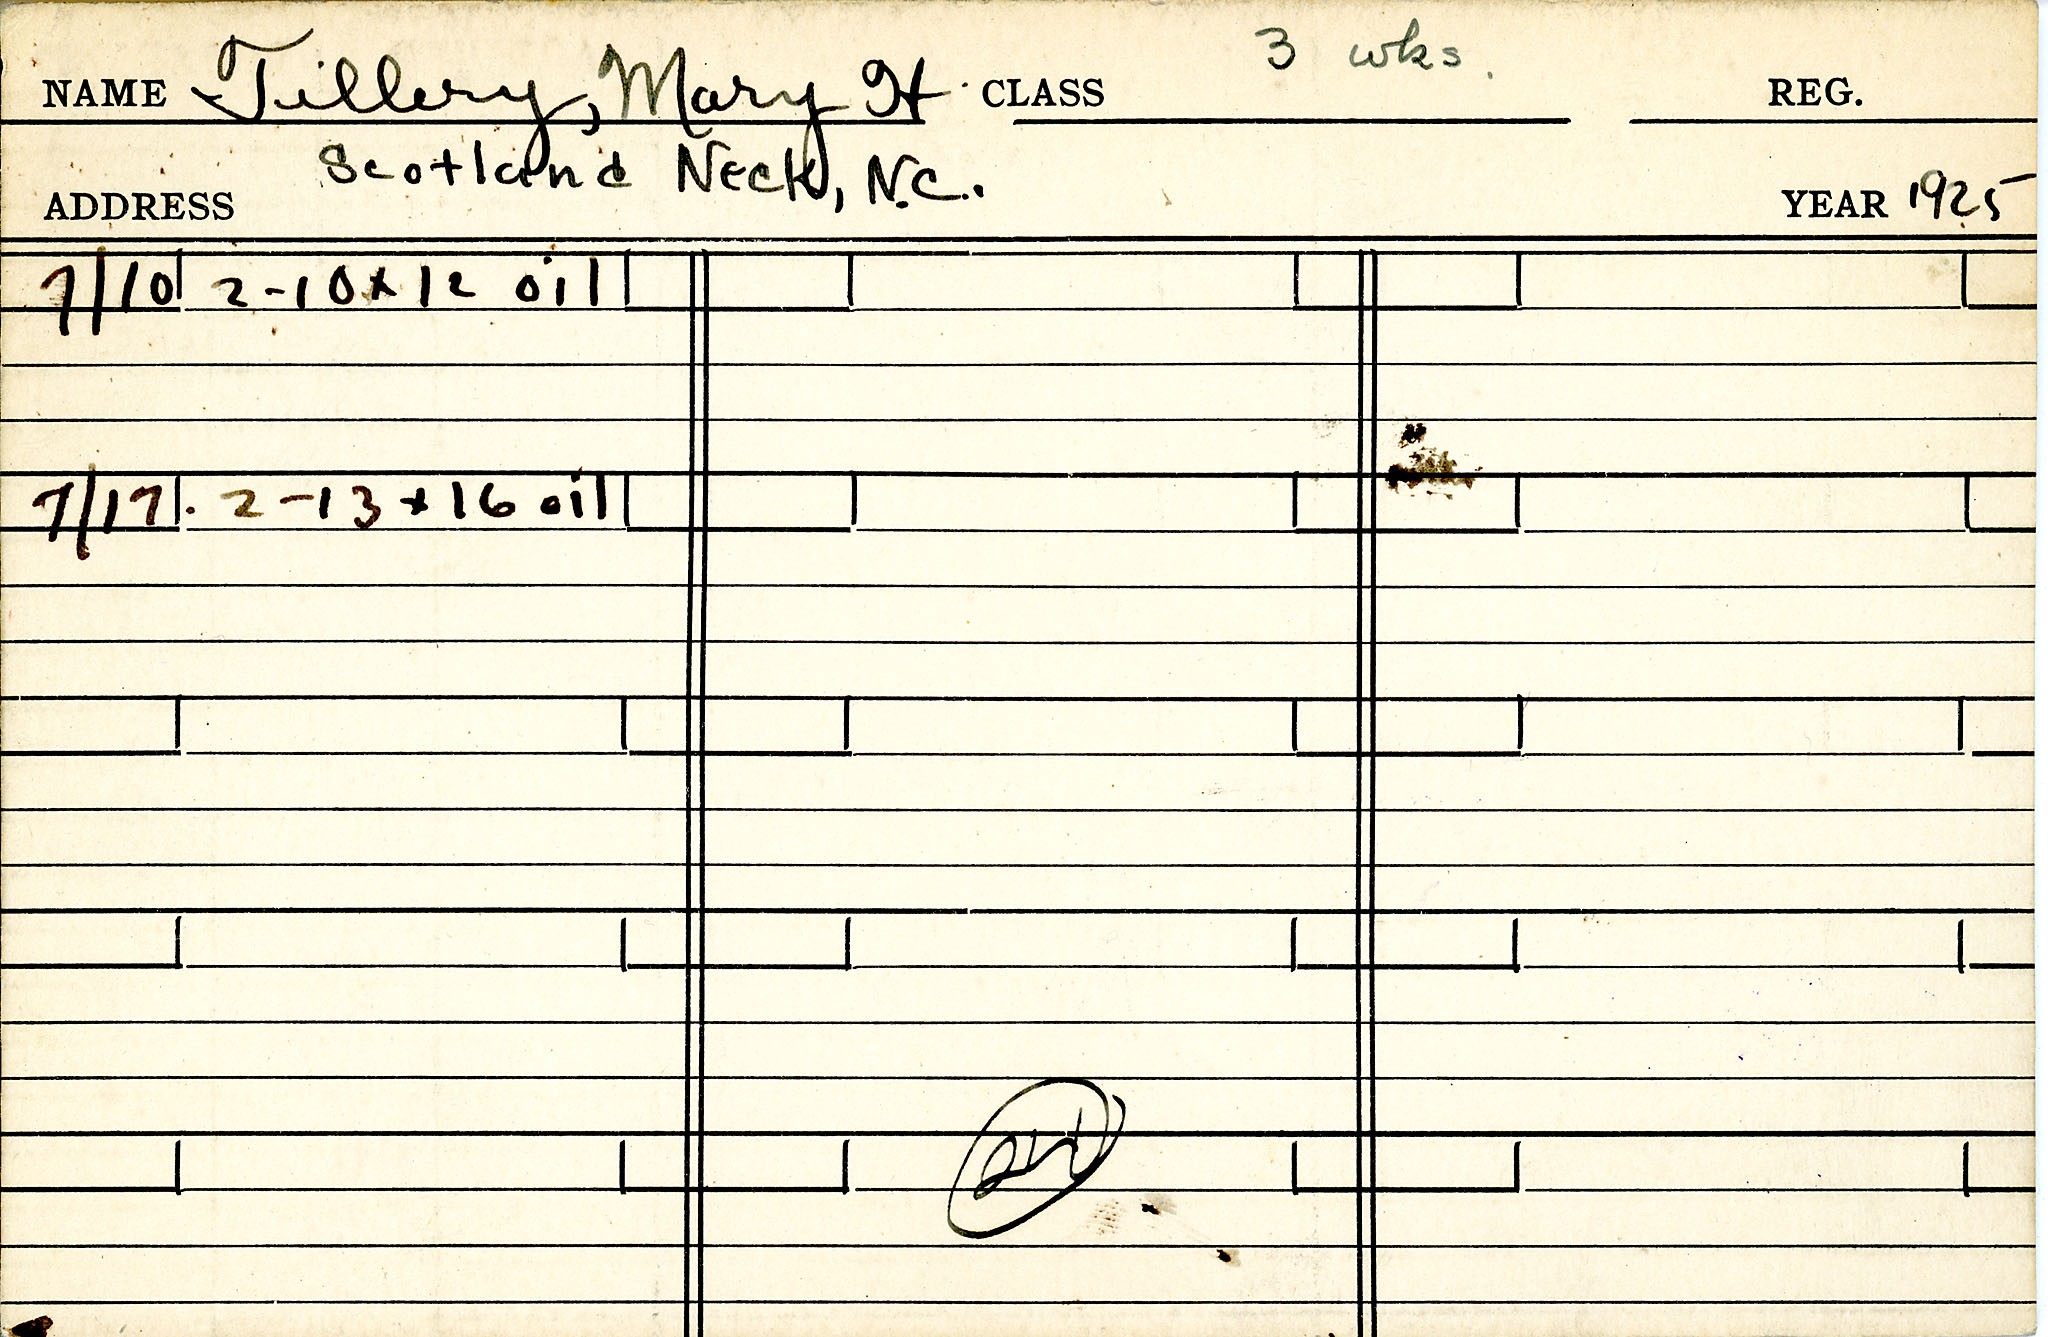 3 wks.
NAME Tillery, Mary H. CLASS REG.
Scotland Neck, N.C.
ADDRESS YEAR 1925
7/10 2-10x12 oil
7/17. 2-13x16 oil